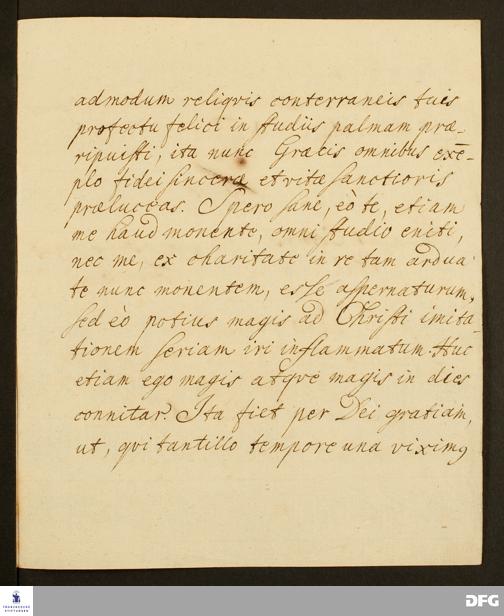 admodum reliqvis conterraneis tuis
profectu felici in studiis palmam præ-
ripuisti, ita nunc Græcis omnibus exē-
plo fidei sinceræ et vitæ sanctioris
præluceas. Spero sane, eò te, etiam
me haud monente, omni studio eniti,
nec me, ex charitate in re tam ardua
te nunc monentem, esse aspernaturum,
sed eò potius magis ad Christi imita-
tionem seriam iri inflammatum. Huc
etiam ego magis atqve magis in dies
connitar. Ita fiet per Dei gratiam,
ut, qvi tantillo tempore una viximꝰ
FRANCKESCHE
STIFTUNGEN
DFG